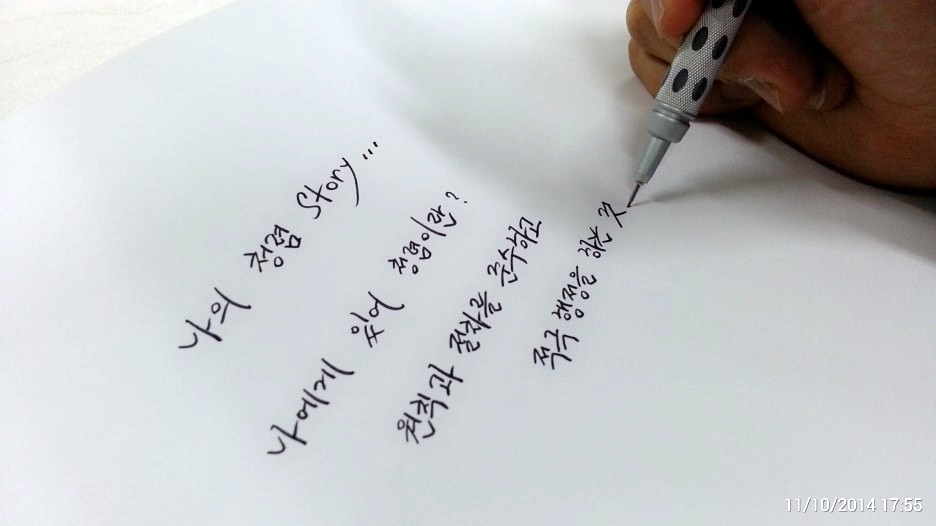 나의 청렴 Story...
나에게 있어 청렴이란?
원칙과 절차를 준수하고
적극 행정을 하는
11/10/2014 17:55